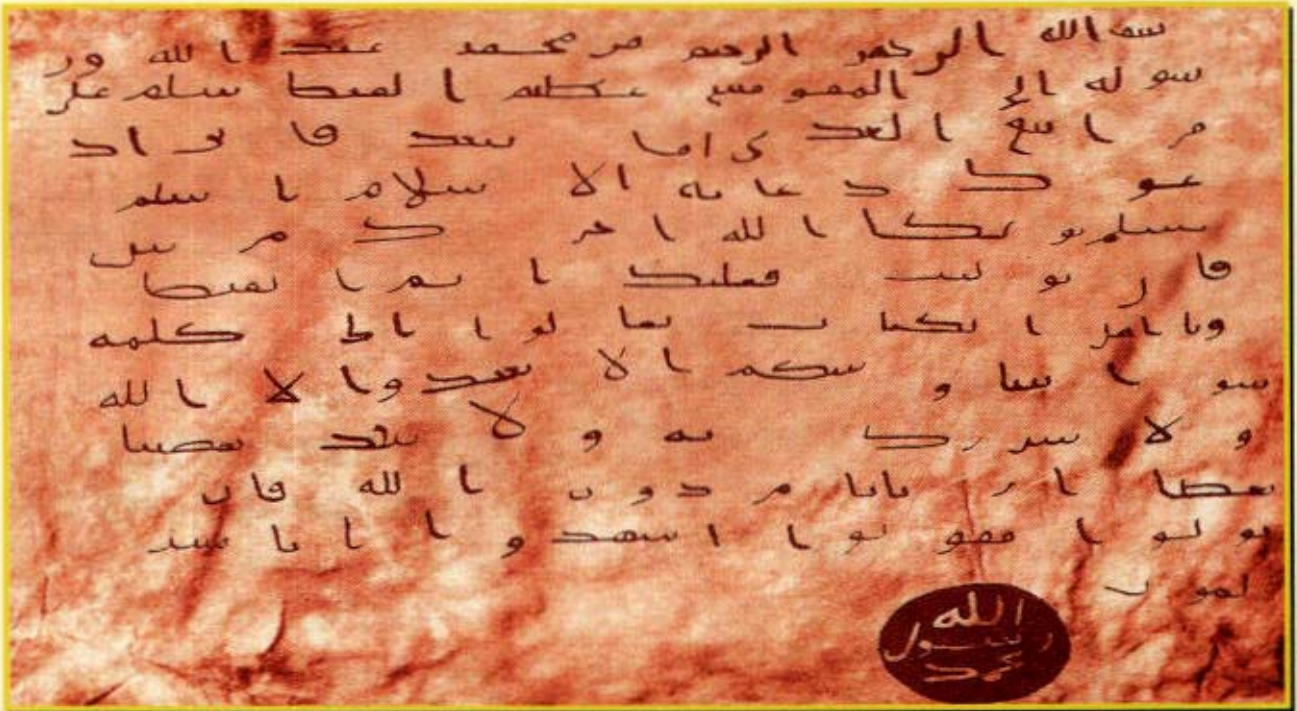 بسم الله الرحمن الرحيم من محمد عبد الله ور
سوله الى المقوقس عظيم القبط سلم على
من اتبع الهدى اما بعد فانى اد
عوك بدعاية الاسلام اسلم
تسلم يوتك الله اجرك مرتين
فان توليت فعليك اثم القبط
ويا اهل الكتاب تعالوا الى كلمة
سوا بيننا وبينكم الا نعبد الا الله
ولا نشرك به ولا يتخذ بعضنا
بعضا اربابا من دون الله فان
تولوا فقولوا اشهدوا بانا مس
لمون
الله
رسول
محمد